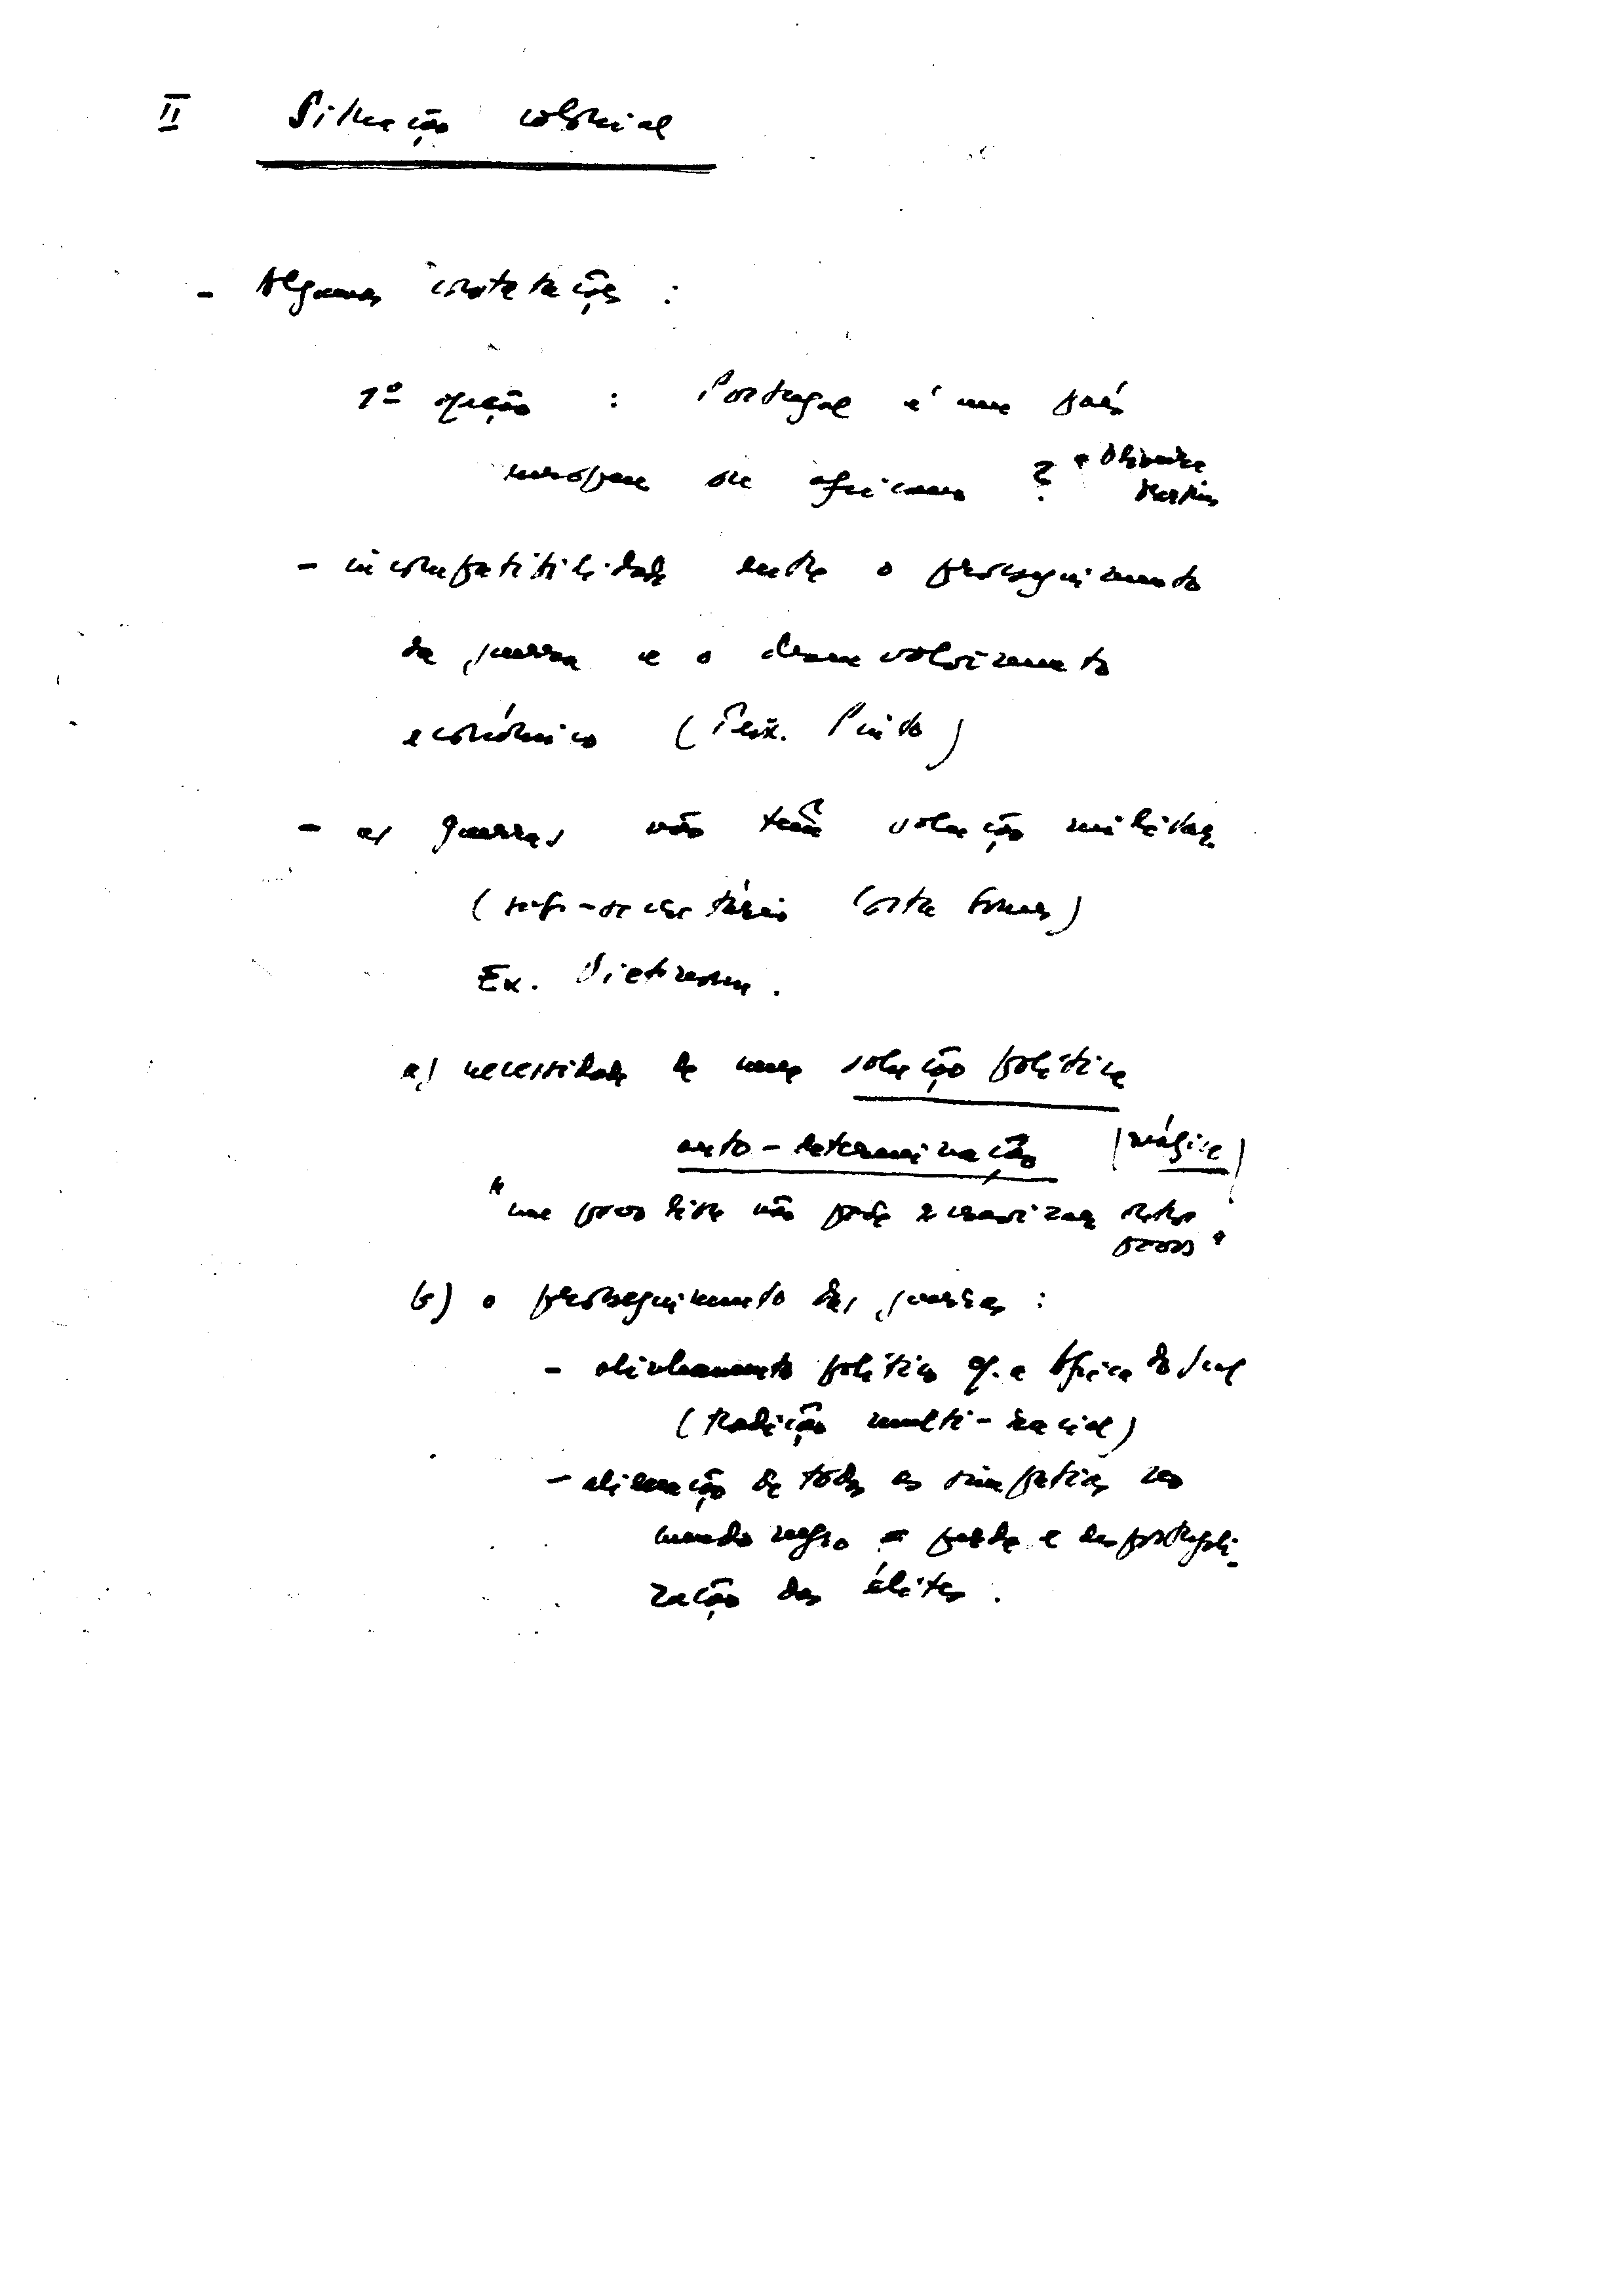 II Situação colonial
- Algumas constatações :
1º opção : Portugal é um país
europeu ou africano ? Oliveira
Martins
- incompatibilidade entre o prosseguimento
da guerra e o desenvolvimento
económico ( Pinto )
- as guerras não têm solução militar
( sub-secretário Costa Gomes )
Ex. Vietname .
a) necessidade de uma solução política
auto-determinação (mágica)
"um povo livre não pode escravizar outros
povos"
b) o prosseguimento das guerras :
- alinhamento político c/. a África do Sul
(tradição multi-racial)
- alienação de todas as simpatias no
mundo negro = perda e desportugali-
zação das élites .